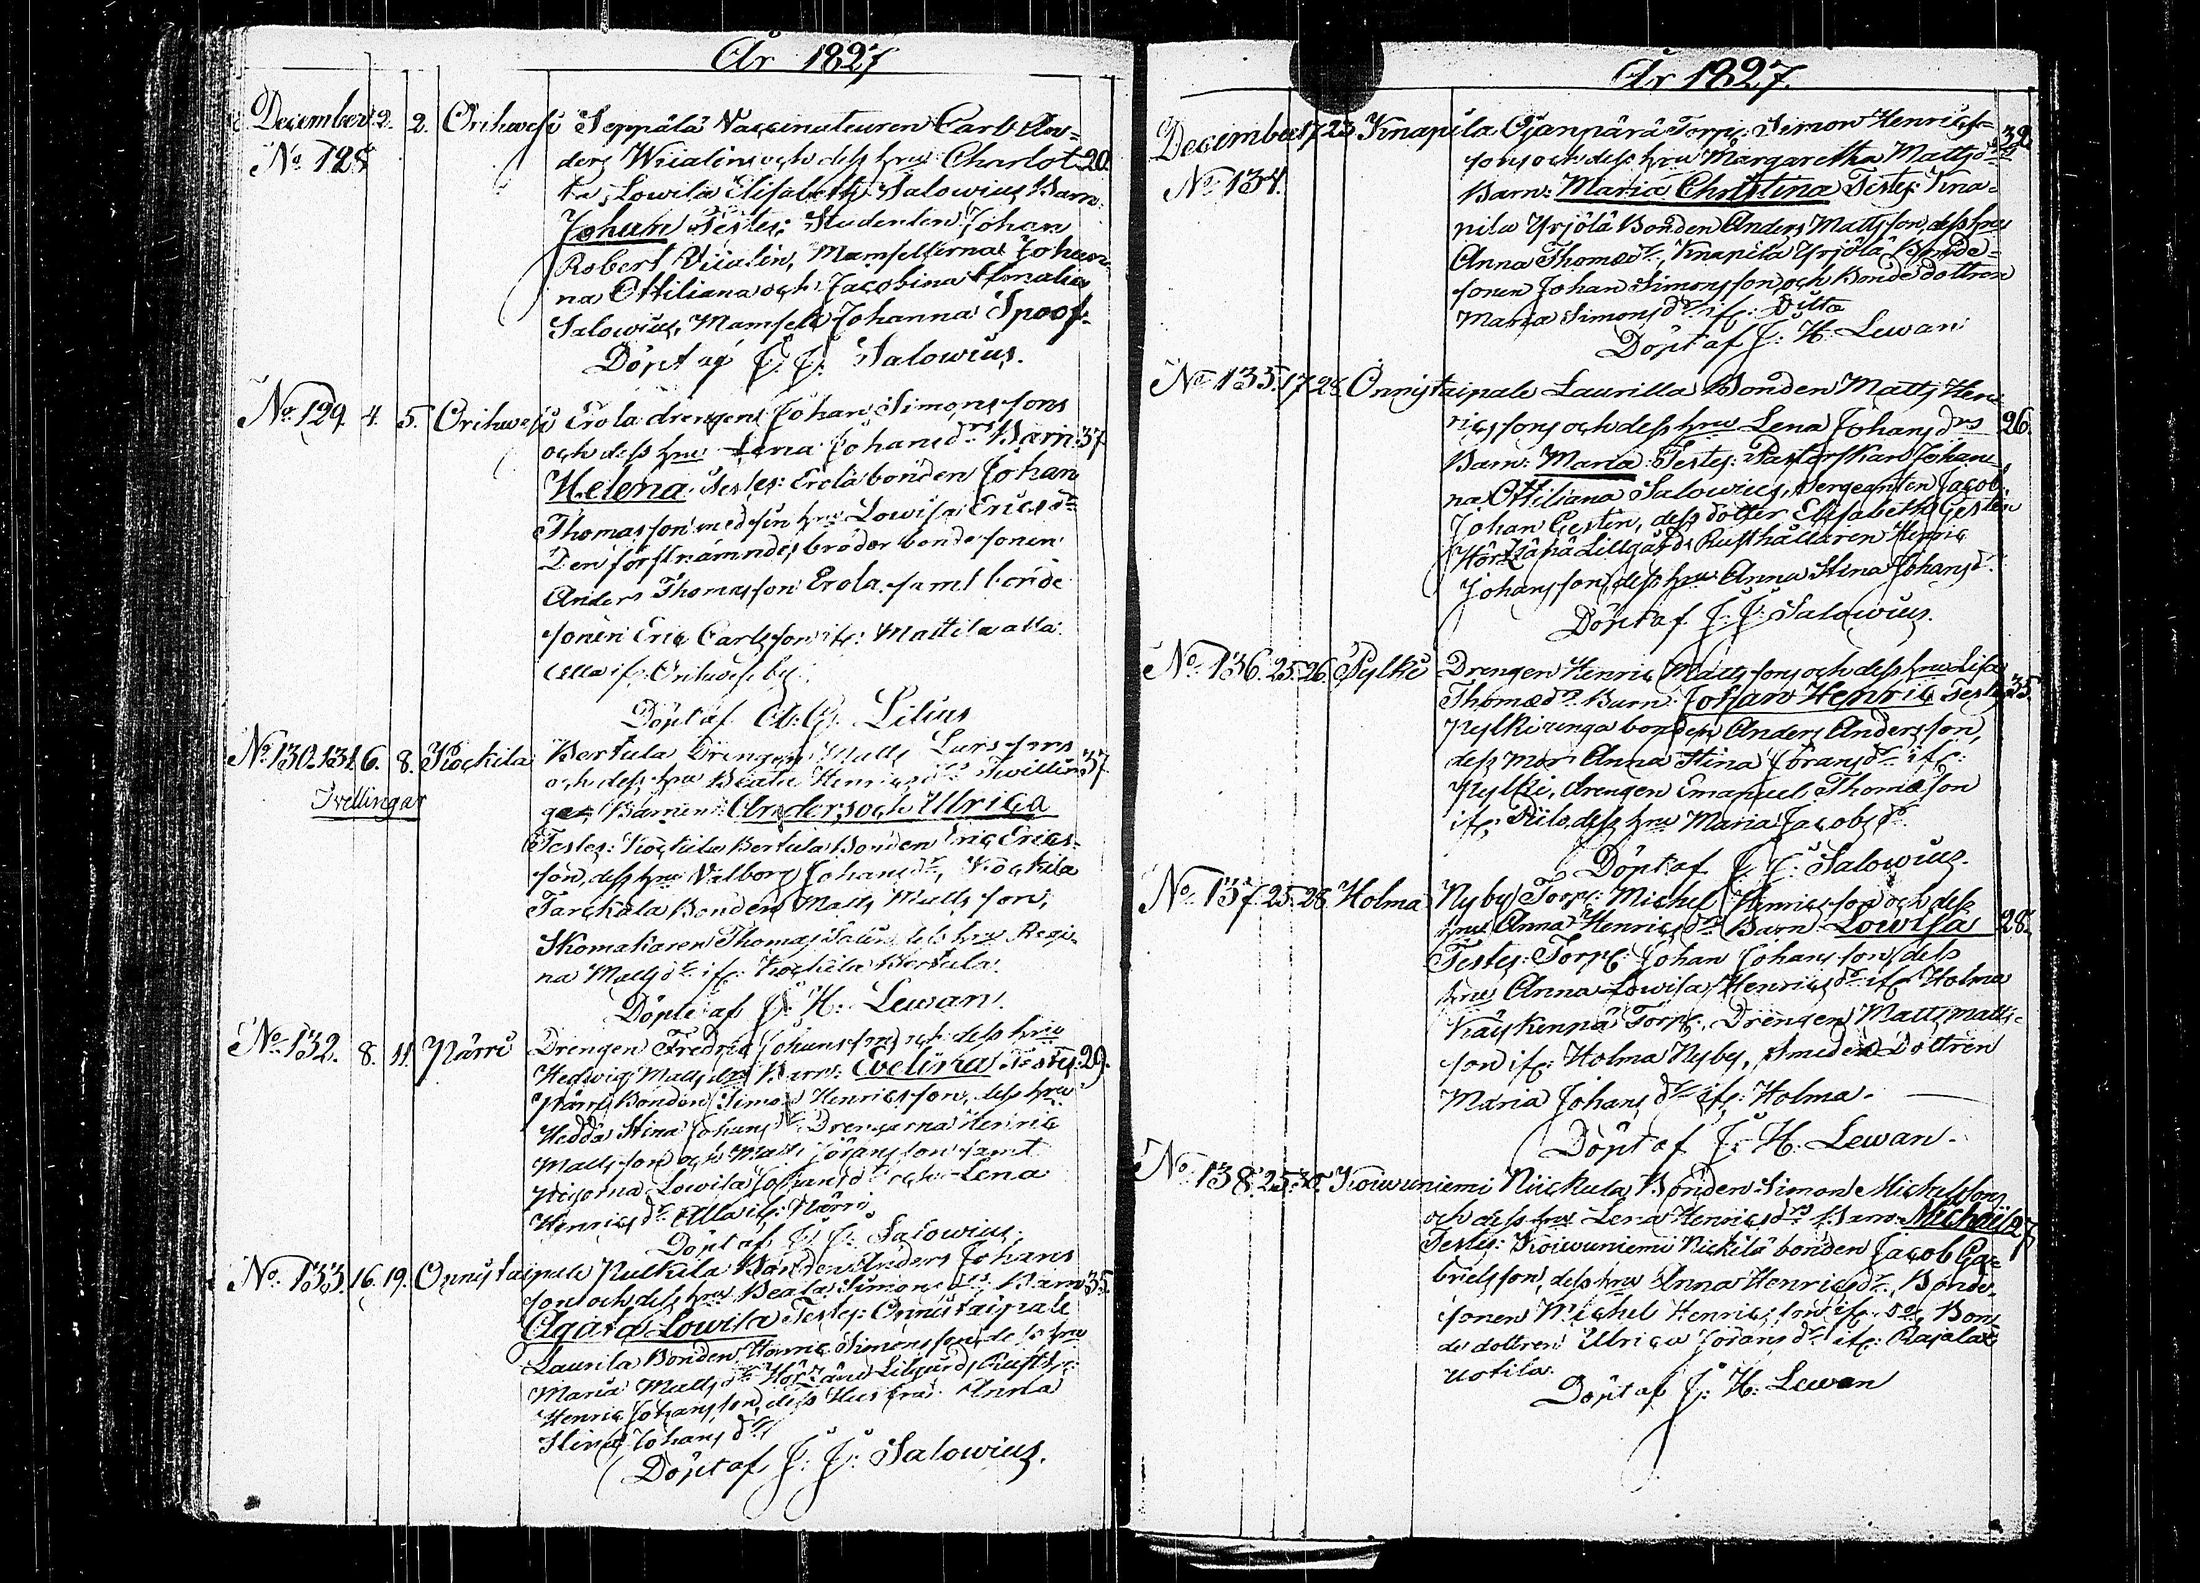 År 1827
December 2. 2. Orihwesi Seppälä Vaccinateuren Carl An-
No 128 ders Wiialins och dess hru Charlot- 20.
ta Lowisa Elisabeth Salowius Barn:
Johan Testes: Studenten Johan
Robert Wiialin, Mamsellerna Johan-
na Ottiliana och Jacobina Amalia
Salowius, Mamsell Johanna Spoof.
Döpt af J: J: Salowius.
No 129. 4. 5. Orihwesi Erola drengens Johan Simonssons
och dess hru Lena Johansdrs Barn 37
Helena. Testes: Erola bonden Johan
Thomasson med sin hru Lowisa Ericsdr
Den förstnämndes broder bondesonen
Anders Thomasson Erola samt bonde
sonen Eric Carlsson if: Mattila alla
if: Orihwesi by.
Döpt af Lilius
No 130. 131. 6. 8. Kockila Bertula Drengens Matts Larssons
och dess hru Beata Henricsdrs Twillin- 37
Tvillingar gar, Barnen: Anders och Ulrica
Testes: Kockila Bertula Bonden Eric Erics-
son, dess hru Walborg Johansdr, Kockila
Tarckala Bonden Matts Mattsson,
Skomakaren Thomas Salin dess hru Regi-
na Mattsdr if: Kockila Bertula.
Döpte af J: H: Lewan.
No 132. 8. 11. Närri Drengen Fredric Johanssons och dess hru
Hedwig Mattsdrs Barn: Evelina Testes: 29.
Närri Bonden Simon Henricsson, dess hru
Hedda Stina Johansdr Drengarna Henric
Mattsson och Matts Jöransson samt
Pigorna Lowisa Johansdr och Lena
Henricsdr Alla if: Närri
Döpt af J: J: Salowius.
No 133. 16. 19. Onnistaipale Pulkila Bonden Anders Johans
son och dess hru Beata Simonsdrs Barn 35.
Agata Lowisa Testes: Onnistaipale
Laurila Bonden Henric Simonsson, dess hru
Maria Mattsdr Lilgårds Rusth:
Henric Johansson, dess Hustru Anna
Stina Johansdr
Döpt af J: J: Salowius.
År 1827.
December 17. 23. Knapila Ojanpärä Torp: Simon Henrics- 38
sons och dess hru Margaretha Mattsdrs
No 134. Barn: Maria Christina Testes: Kna-
pila Yrjölä Bonden Anders Mattsson, dess hru
Anna Thomædr, Knapila Yrjölä Bonde-
sonen Johan Simonsson, och Bondedottren
Maria Simonsdr if: Ditto
Döpt af J: H: Lewan.
No 135. 17. 24. Onnistaipale Laurilla Bonden Matts Hen-
ricssons och dess hru Lena Johansdrs 26.
Barn: Maria: Testes: Pastorskan Johan-
na Ottiliana Salowius, Sergeanten Jacob
Johan Gestrin, dess dotter Elisabeth Gestrin
Lillgårds Rusthållaren Henric
Johansson, dess hru Anna Stina Johansdr.
Döpt af J: J: Salowius.
No 136. 25. 26. Pylki Drengen Henric Mattssons och dess hru Lisa
Thomædrs Barn: Johan Henric Testes: 35
Pylki unga bonden Anders Andersson,
dess Mor Anna Stina Göransdr if:
Pylki, drengen Emanuel Thomæson
if: Piilo, dess hru Maria Jacobsdr.
Döpt af J: J: Salowius.
No 137. 25. 28. Holma Nyby Torp: Michel Henricsson och dess
hru Anna Henricsdrs Barn Lowisa 28.
Testes: Torp: Johan Johansson, dess
hru Anna Lowisa Henricsdr if: Holma
Torp:, Drengen Matts Matts-
son if: Holma Nyby, Smeden Dottren
Maria Johansdr if: Holma.
Döpt af J: H: Lewan.
No 138. 25. 30. Koiwuniemi Niickula Bonden Simon Michelssons
och dess hru Lena Henricsdrs Barn: Michael 27
Testes: Koiwuniemi Nickilä bonden Jacob Ga-
brielsson, dess hru Anna Henricsdr, Bonde-
sonen Michel Henricsson if: Do, Bon-
de dottren Ulrica Göransdr if: Rajalax
Uotila.
Döpt af J: H: Lewan